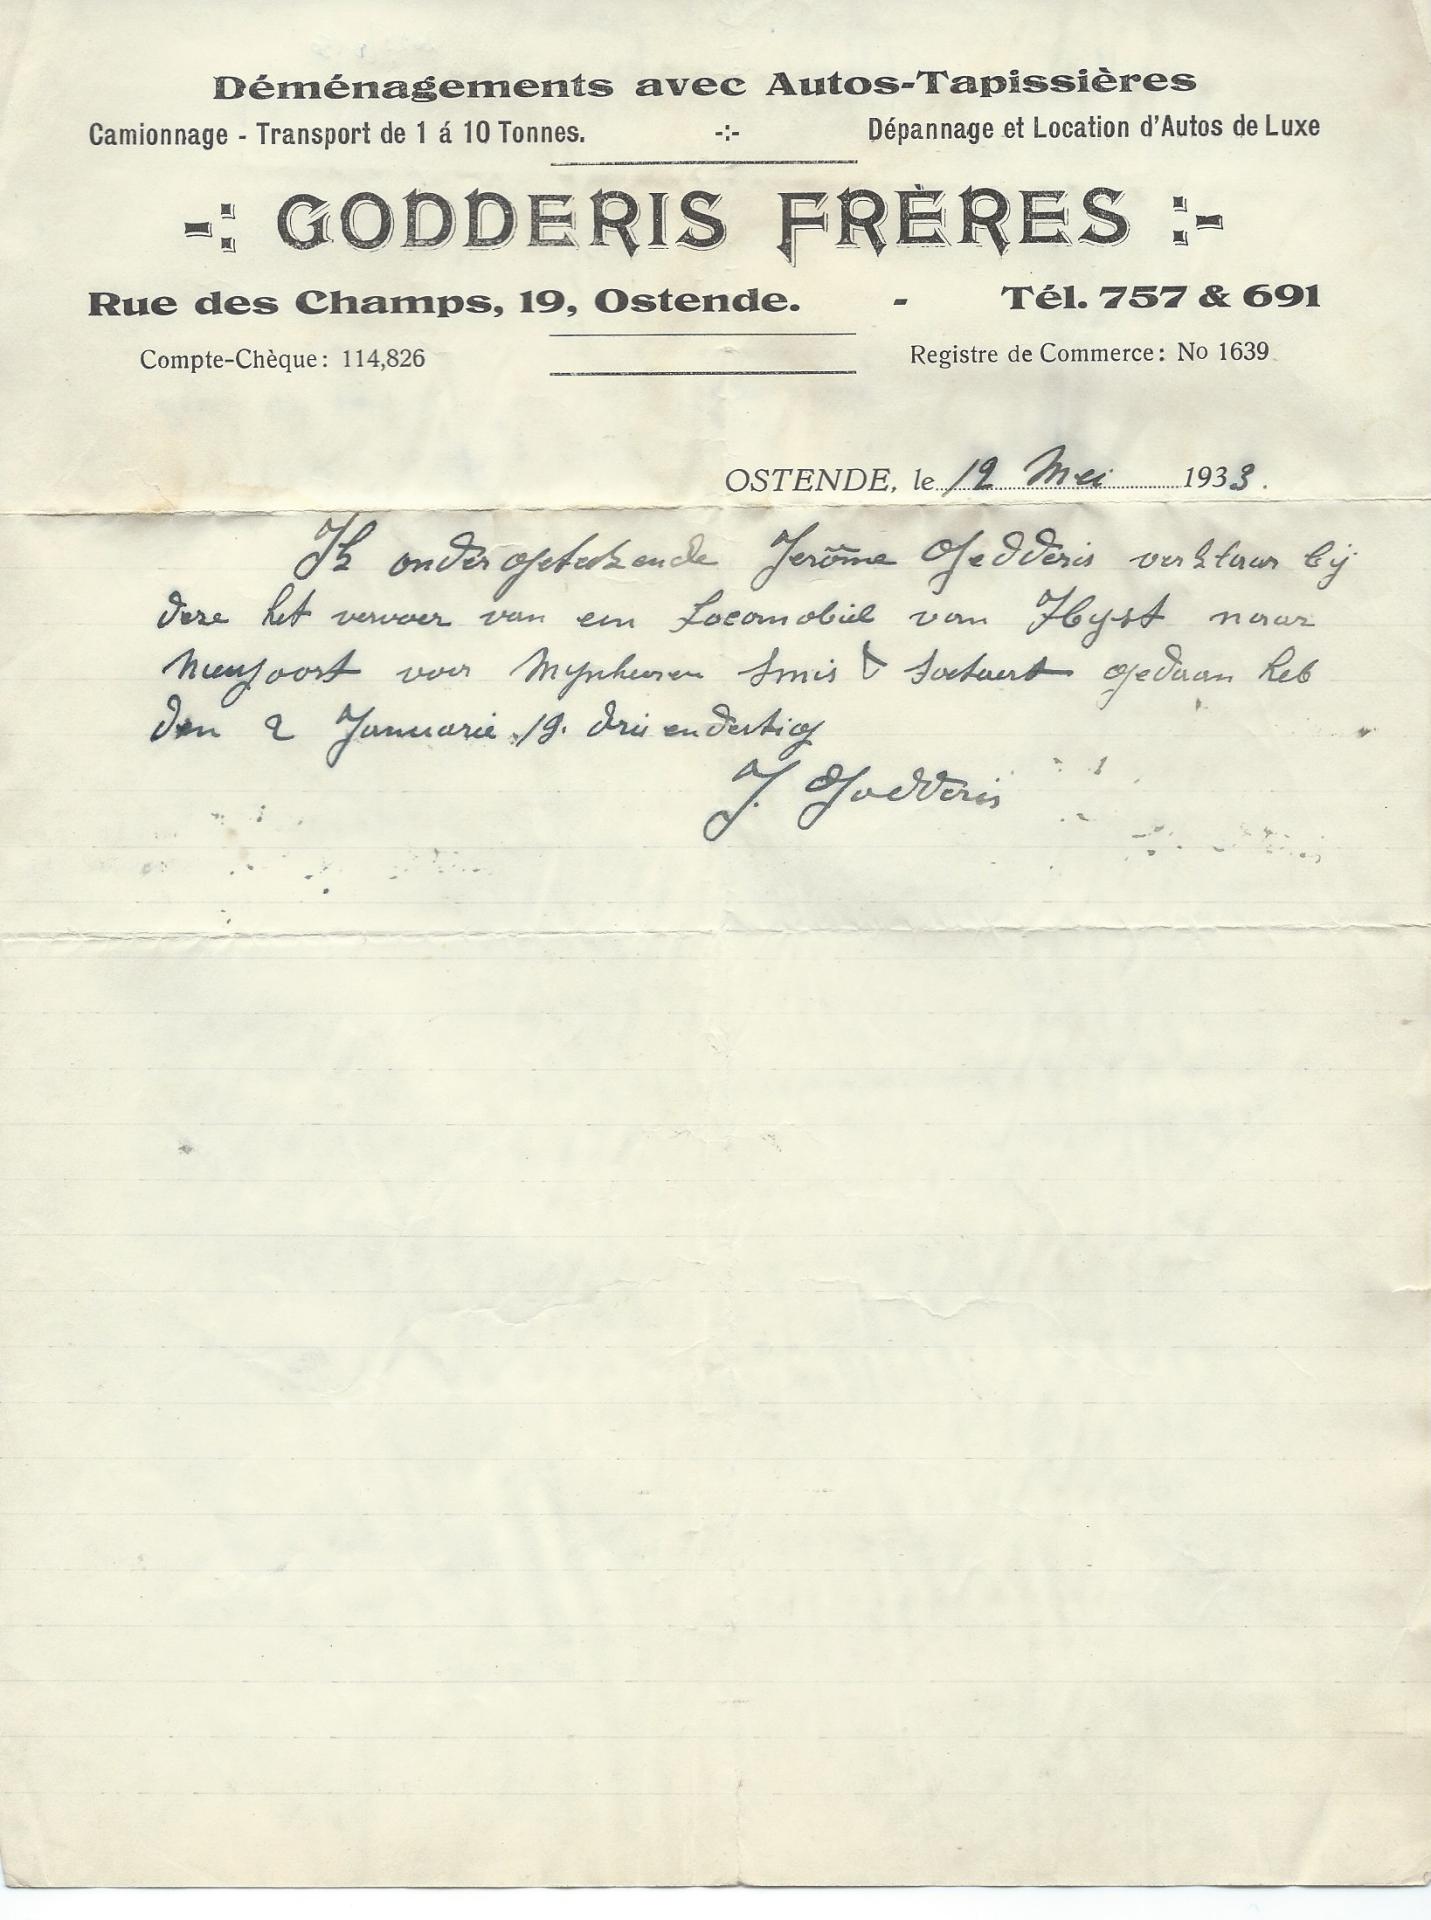 Déménagements avec Autos-Tapissières
Camionnage - Transport de 1 á 10 Tonnes. -:- Dépannage et Location d'Autos de Luxe
-: GODDERIS FRÈRES :-
Rue des Champs, 19, Ostende. - Tél. 757 & 691
Compte-Chèque: 114,826 Registre de Commerce: No 1639
OSTENDE, le 12 Mei 1933.
Ik ondergeteekende Jerôme Godderis verklaar bij
deze het vervoer van een Locomobiel van Heyst naar
Nieupoort voor Mynheeren Smis & Soetaert gedaan heb
den 2 Januarie 19. drie en dertig
J. Godderis